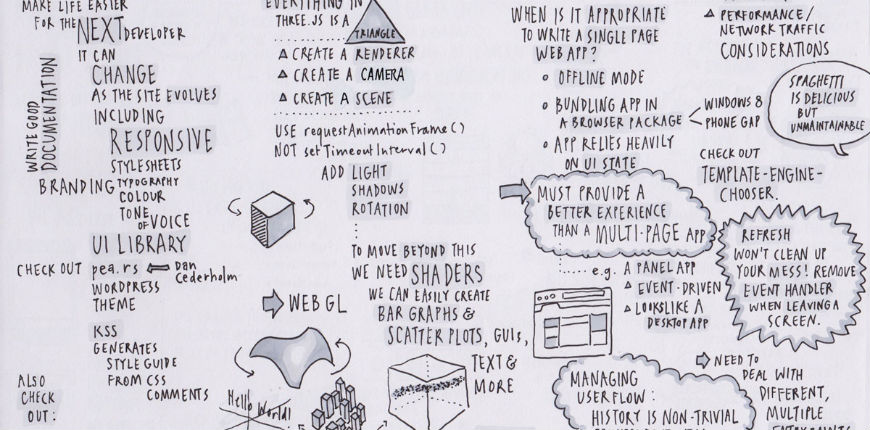 MAKE LIFE EASIER
FOR THE NEXT DEVELOPER
IT CAN
CHANGE
AS THE SITE EVOLVES
INCLUDING
RESPONSIVE
STYLESHEETS
WRITE GOOD
DOCUMENTATION
BRANDING TYPOGRAPHY
COLOUR
TONE
OF VOICE
UI LIBRARY
CHECK OUT pea.rs
Dan
Cederholm
WORDPRESS
THEME
KSS
GENERATES
STYLE GUIDE
FROM CSS
COMMENTS
ALSO
CHECK
OUT:
EVERYTHING IN
THREE.JS IS A
TRIANGLE
CREATE A RENDERER
CREATE A CAMERA
CREATE A SCENE
USE requestAnimationFrame()
NOT setTimeoutInterval()
ADD LIGHT
SHADOWS
ROTATION
TO MOVE BEYOND THIS
WE NEED SHADERS
WEB GL
WE CAN EASILY CREATE
BAR GRAPHS &
SCATTER PLOTS, GUIs,
TEXT &
MORE
Hello World!
WHEN IS IT APPROPRIATE
TO WRITE A SINGLE PAGE
WEB APP?
OFFLINE MODE
BUNDLING APP IN
A BROWSER PACKAGE
WINDOWS 8
PHONE GAP
APP RELIES HEAVILY
ON UI STATE
MUST PROVIDE A
BETTER EXPERIENCE
THAN A MULTI-PAGE APP
e.g. A PANEL APP
EVENT-DRIVEN
LOOKS LIKE A
DESKTOP APP
MANAGING
USER FLOW:
HISTORY IS NON-TRIVIAL
PERFORMANCE/
NETWORK TRAFFIC
CONSIDERATIONS
SPAGHETTI
IS DELICIOUS
BUT
UNMAINTAINABLE
CHECK OUT
TEMPLATE-ENGINE-
CHOOSER.
REFRESH
WON'T CLEAN UP
YOUR MESS! REMOVE
EVENT HANDLER
WHEN LEAVING A
SCREEN.
NEED TO
DEAL WITH
DIFFERENT,
MULTIPLE
ENTRY POINTS